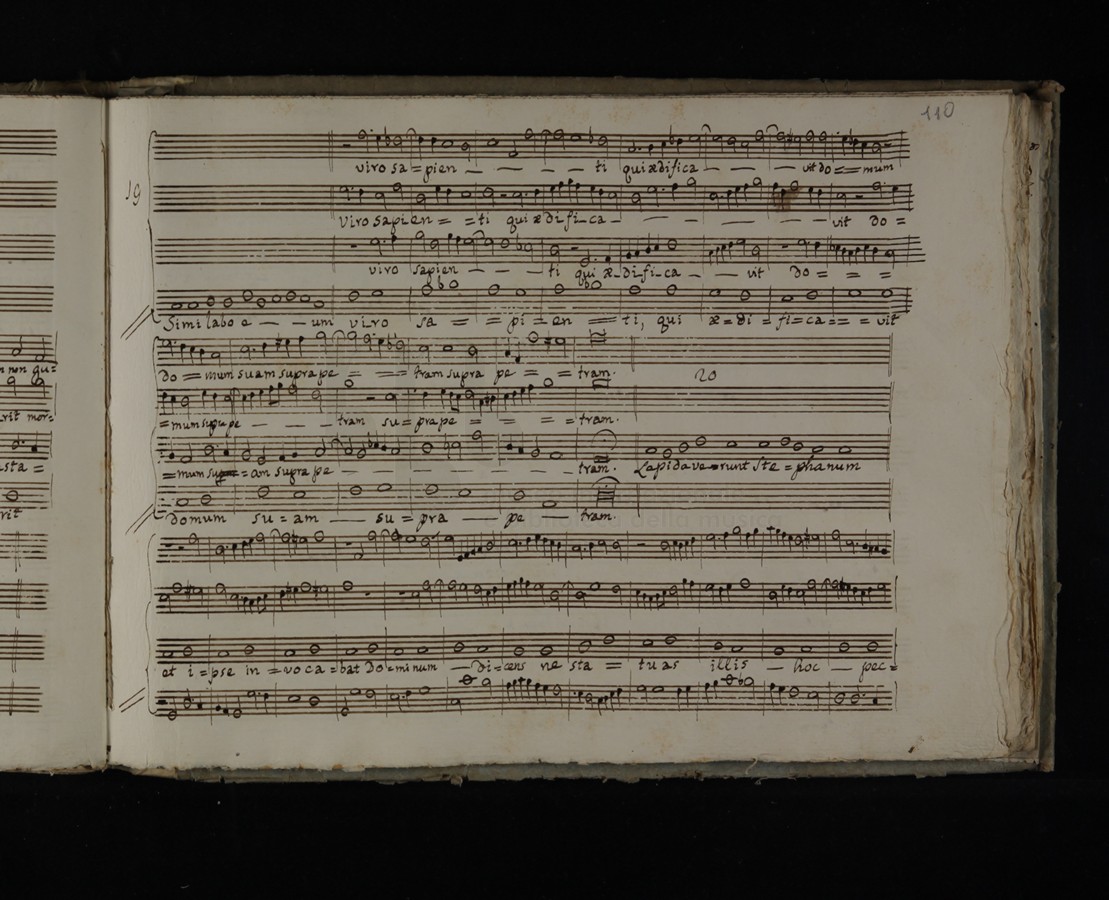 110
viro sa=pien — — — — ti qui ædifica — — — vit do == mum
19
viro sapien = =ti qui ædi-fi-ca — — — — — vit do =
viro sapien — — — ti qui æ-di-fi-ca — — vit do = = =
Similabo e — — um viro sa = = pi = en == ti, qui æ=di = fi=ca=== vit
n non qu=
do = mum suam supra pe = === tram supra pe = = = tram.
20
rit mor=
=mum supra pe — — — tram su=pra pe = = = = tram.
sta =
=mum = am supra pe — — — — — — — tram. Lapidave=runt Ste=phanum
rit
domum su=am — su=pra — pe — tram.
biblioteca della musica
et i=pse in =voca=bat do=minum — di=cens ne sta = tuas illis — hoc — pec=